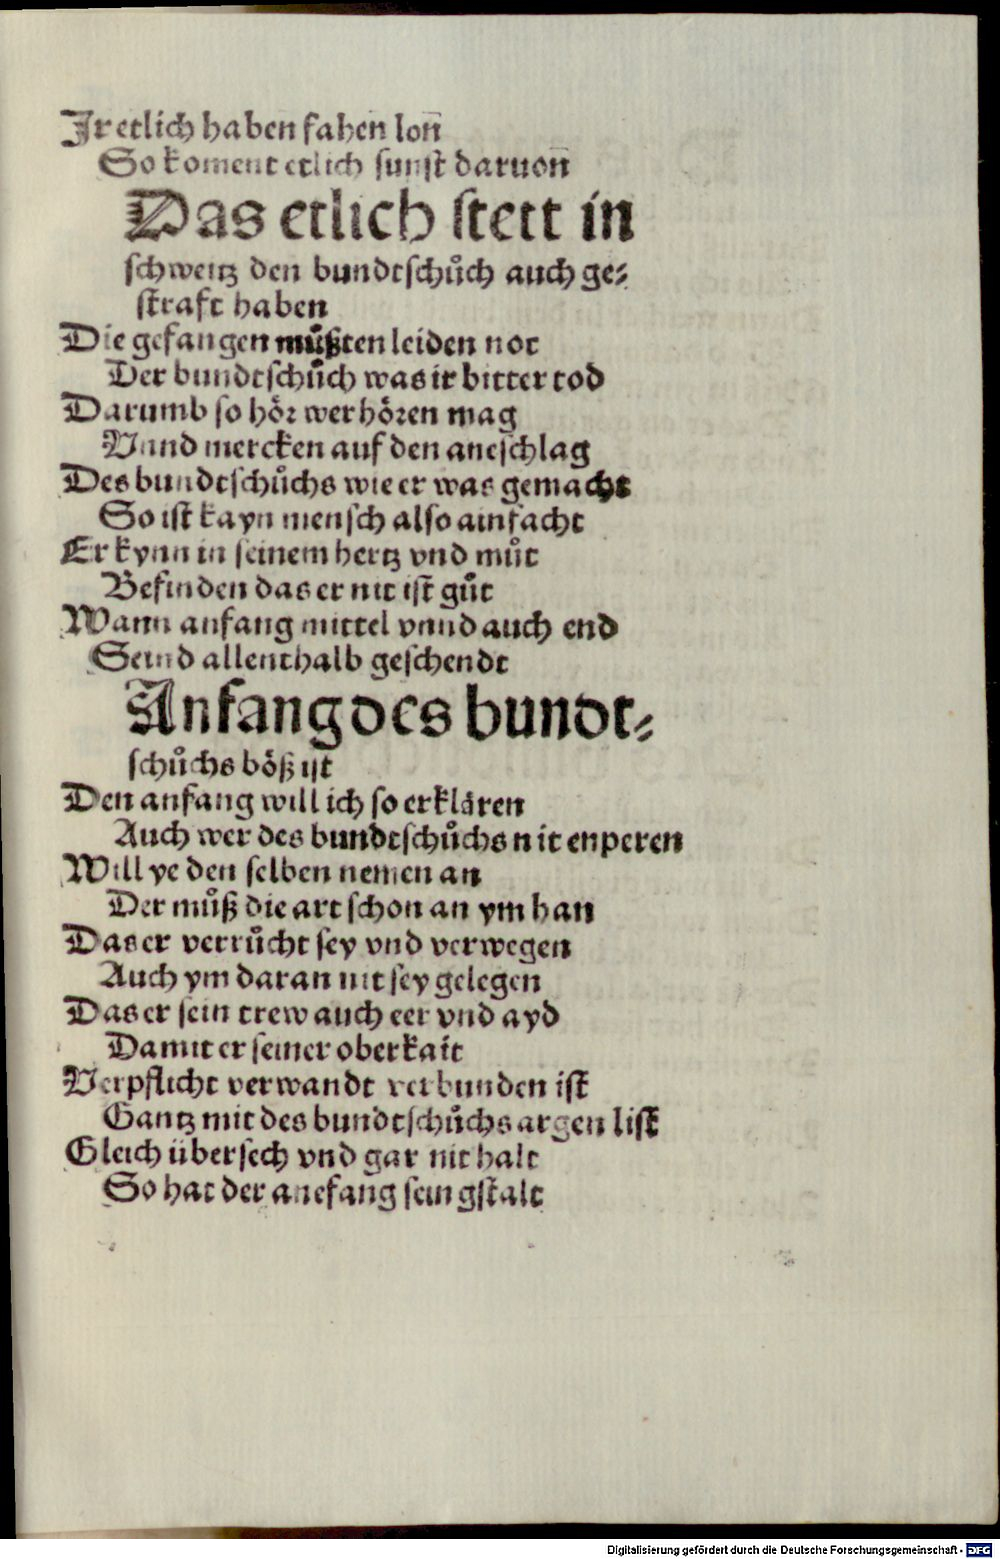 Ir etlich haben fahen lon̄
So koment etlich sunst daruon̄
Das etlich stett in
schweitz den bundtschůch auch ge⸗
straft haben
Die gefangen můßten leiden not
Der bundtschůch was ir bitter tod
Darumb so hör wer hören mag
Vnnd mercken auf den aneschlag
Des bundtschůchs wie er was gemacht
So ist kayn mensch also ainfacht
Er kynn in seinem hertz vnd můt
Befinden das er nit ist gůt
Wann anfang mittel vnnd auch end
Seind allenthalb geschendt
Anfang des bundt⸗
schůchs böß ist
Den anfang will ich so erklären
Auch wer des bundtschůchs nit enperen
Will ye den selben nemen an
Der můß die art schon an ym han
Das er verrůcht sey vnd verwegen
Auch ym daran nit sey gelegen
Das er sein trew auch eer vnd ayd
Damit er seiner oberkait
Verpflicht verwandt verbunden ist
Gantz mit des bundtschůchs argen list
Gleich übersech vnd gar nit halt
So hat der anefang sein gstalt
Digitalisierung gefördert durch die Deutsche Forschungsgemeinschaft - DFG